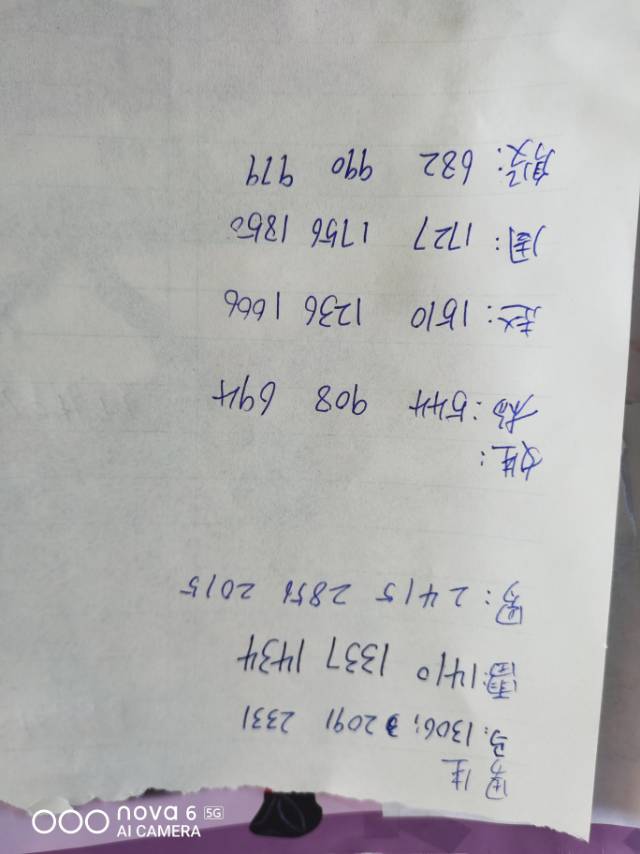 男性
马: 1306; 2091 2331
雷: 1410 1337 1434
男: 2415 2015
女性:
杨: 544 908 694
赵: 1510 1236 1666
周: 1727 1756 1850
: 682 990 979
nova 6 5G
AI CAMERA